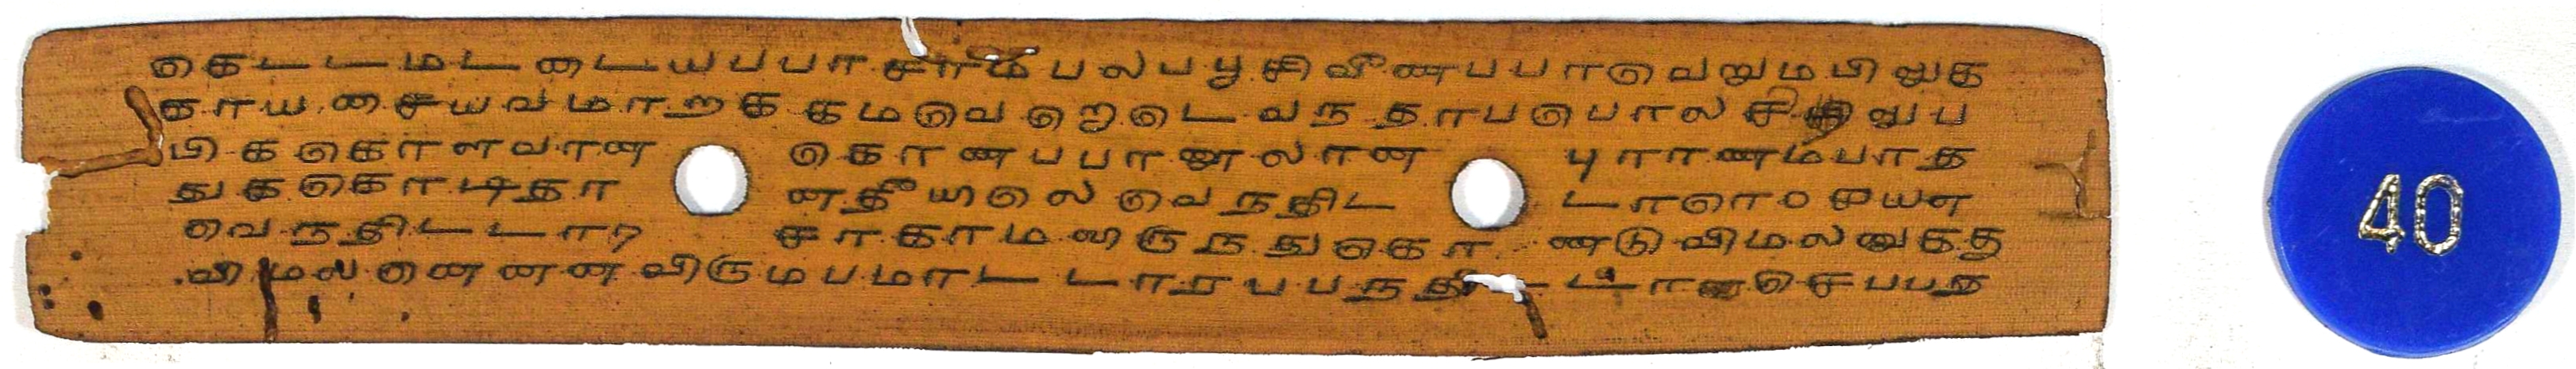 கெடடமடடையபபாசாமபலபபூசிவீணபபாவெறுமபிலுக
காயசையவமாறககமவெறெடெவநதாபபொலசிலுப
பிககொளவான கொணபபானூலான புராணமபாத
துககொடிதா னதீயிலெவெநதிட டாரொ
வெநதிடடார சாகாமலிருநதுகொ ணடுவிமலனுகத
விமலனெனனவிருமபமாட டாரபபநதி டாசெபபத
40